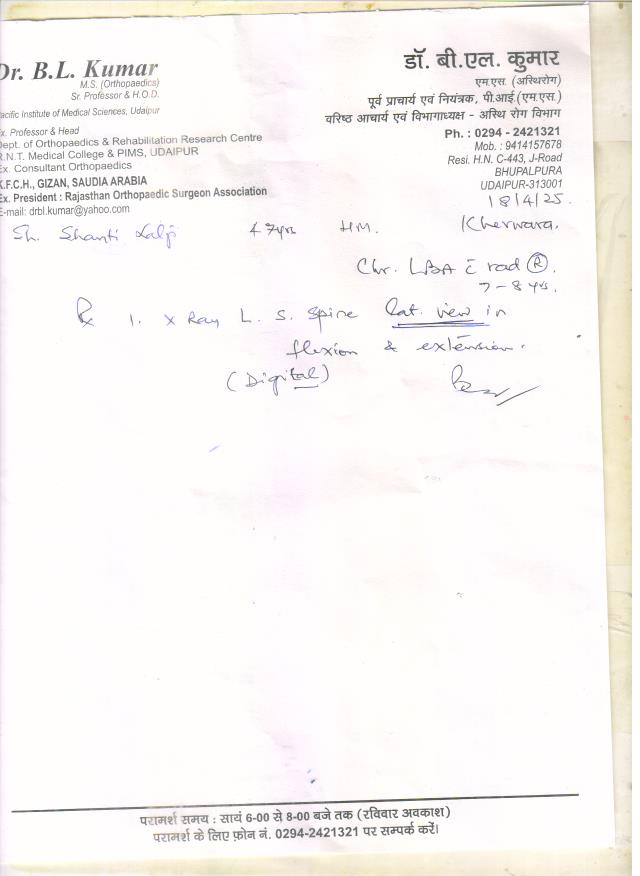 Dr. B.L. Kumar
M.S. (Orthopaedics)
Sr. Professor & H.O.D.
Pacific Institute of Medical Sciences, Udaipur
Ex. Professor & Head
Dept. of Orthopaedics & Rehabilitation Research Centre
R.N.T. Medical College & PIMS, UDAIPUR
Ex. Consultant Orthopaedics
K.F.C.H., GIZAN, SAUDIA ARABIA
Ex. President : Rajasthan Orthopaedic Surgeon Association
E-mail: drbl.kumar@yahoo.com
डॉ. बी.एल. कुमार
एम.एस. (अस्थिरोग)
पूर्व प्राचार्य एवं नियंत्रक, पी.आई.(एम.एस.)
वरिष्ठ आचार्य एवं विभागाध्यक्ष - अस्थि रोग विभाग
Ph. : 0294 - 2421321
Mob. : 9414157678
Resi. H.N. C-443, J-Road
BHUPALPURA
UDAIPUR-313001
18/4/25.
Sh. Shanti Lalji 47yr H.M. Kherwara.
Chr. LBA c̄ rad Ⓡ.
7-8 yrs.
Rx 1. X Ray L. S. Spine Lat. view in
flexion & extension.
(Digital)
परामर्श समय : सायं 6-00 से 8-00 बजे तक (रविवार अवकाश)
परामर्श के लिए फ़ोन नं. 0294-2421321 पर सम्पर्क करें।